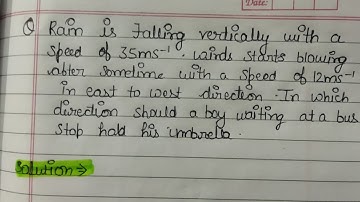 Date:
Q Rain is falling vertically with a
speed of 35ms⁻¹. winds starts blowing
after sometime with a speed of 12ms⁻¹
in east to west direction. In which
direction should a boy waiting at a bus
stop hold his umbrella.
Solution ⇒